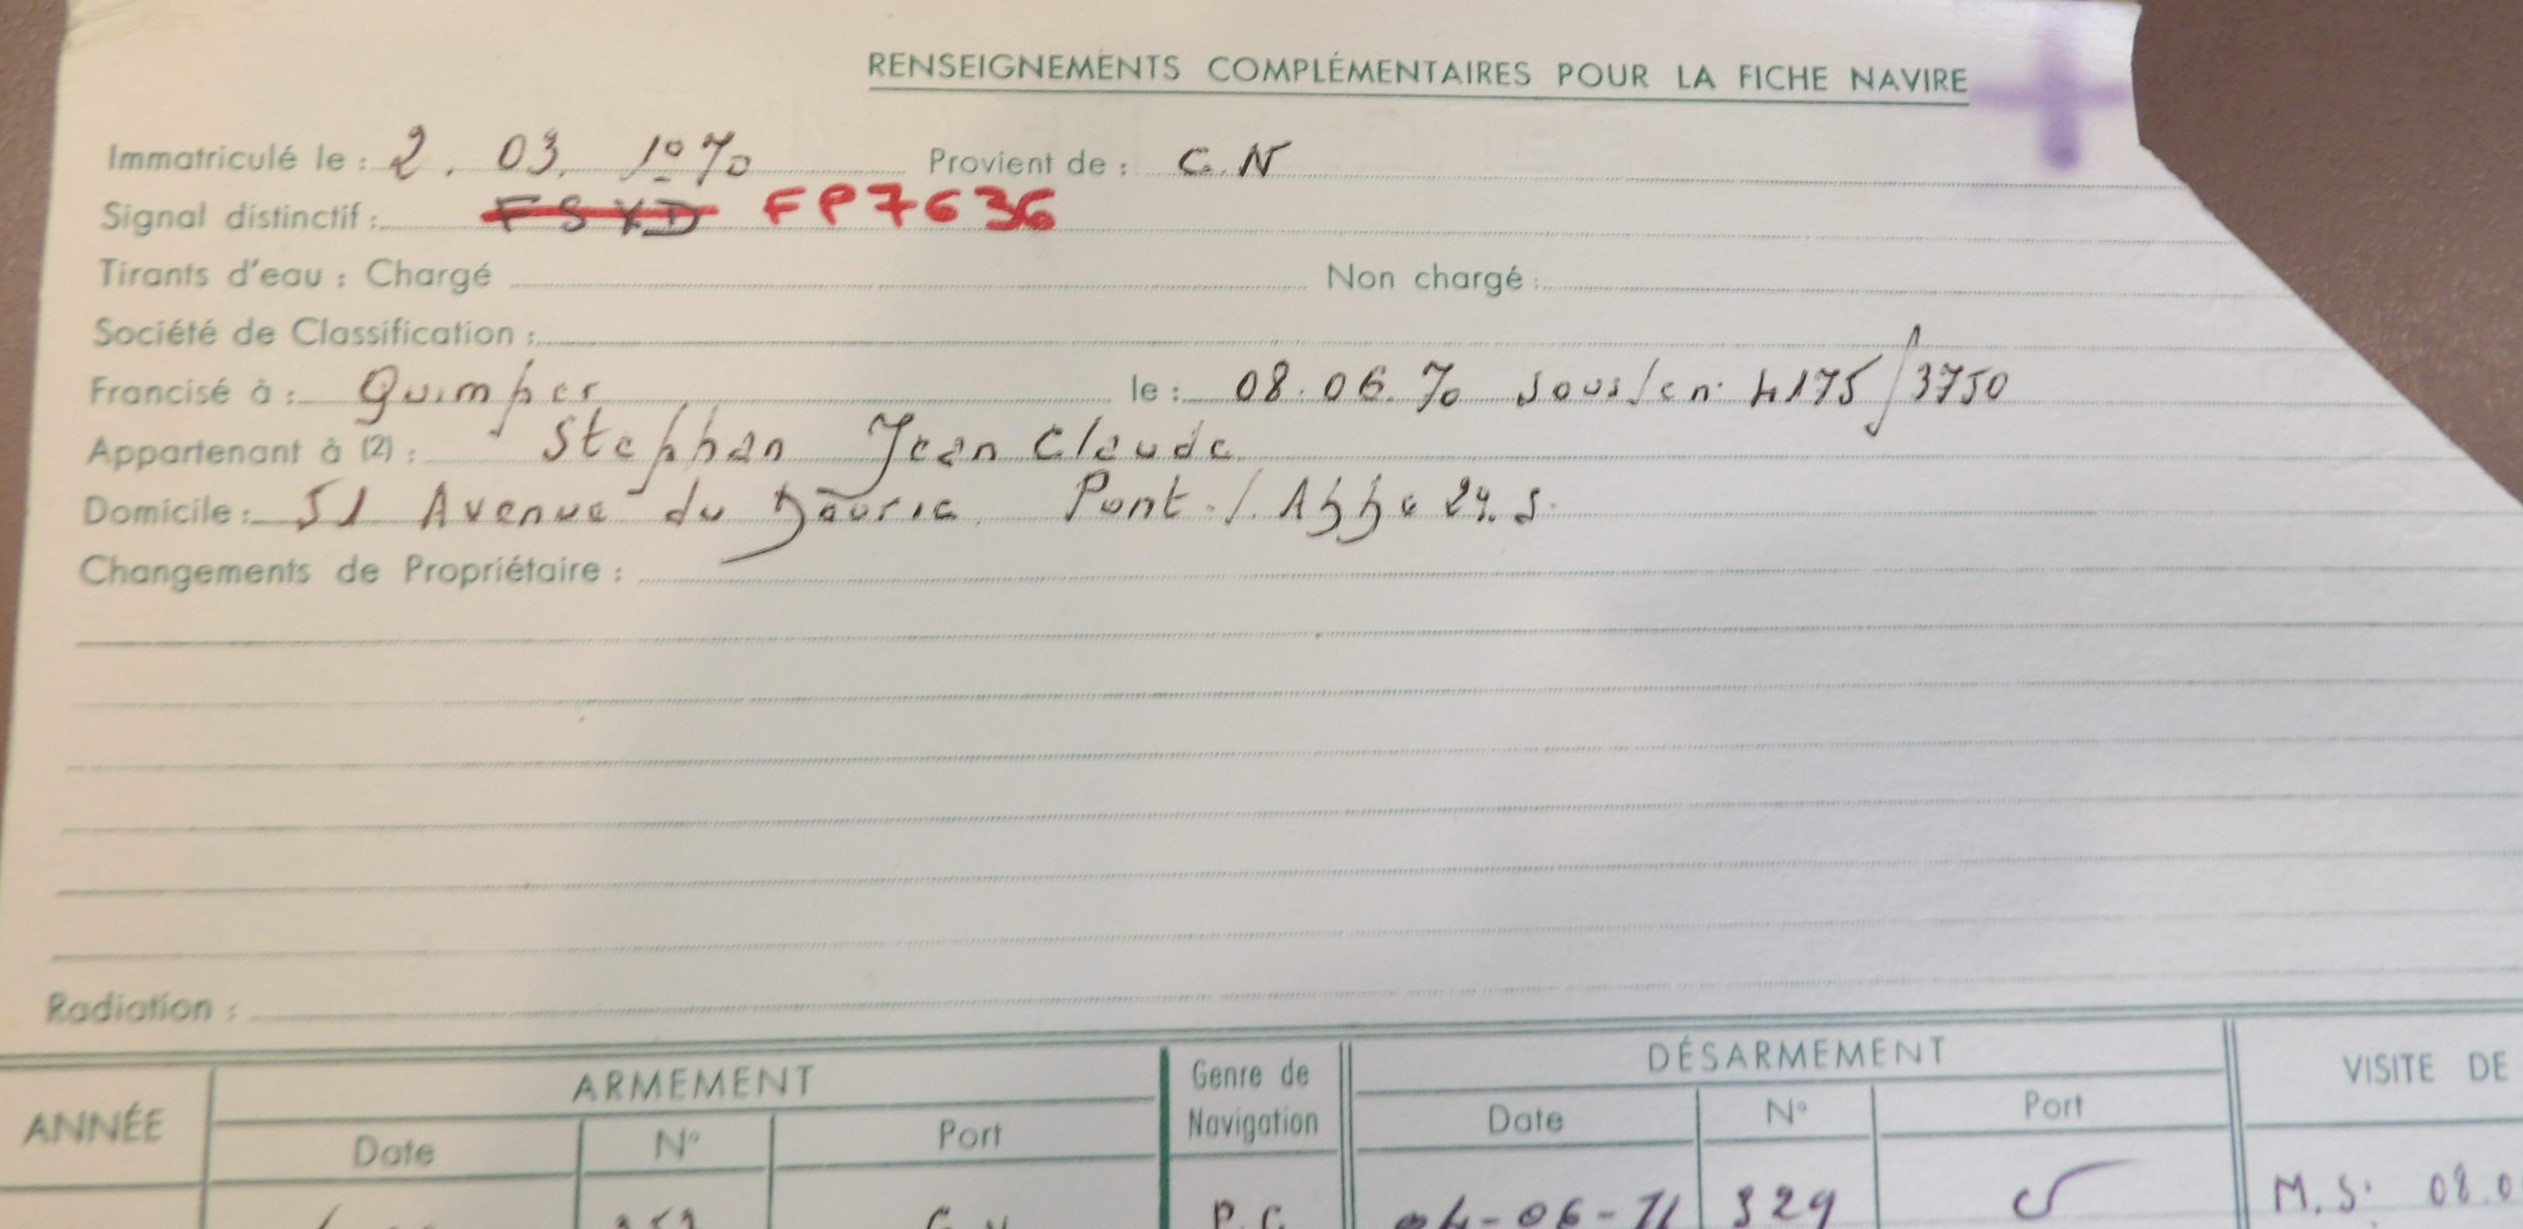 RENSEIGNEMENTS COMPLÉMENTAIRES POUR LA FICHE NAVIRE
Immatriculé le : 2. 03. 1970 Provient de : C.N
Signal distinctif : FSYD FP7636
Tirants d'eau : Chargé Non chargé :
Société de Classification :
Francisé à : Quimper le : 08.06.70 sous/en 4175/3750
Appartenant à (2) : Stephan Jean Claude
Domicile : 51 Avenue du Pont-l'Abbé 29.S.
Changements de Propriétaire :
Radiation :
ANNÉE ARMEMENT Genre de Navigation DÉSARMEMENT VISITE DE
Date N° Port Date N° Port
P.C. 04-06-71 329 M.S: 08.0